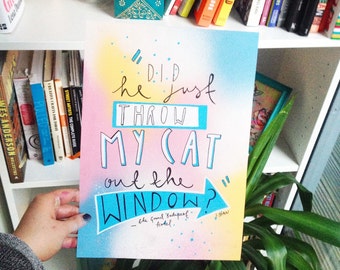 "DID
he just
THROW
MY CAT
out the
WINDOW?"
- the Grand Budapest
Hotel.
WES ANDERSON